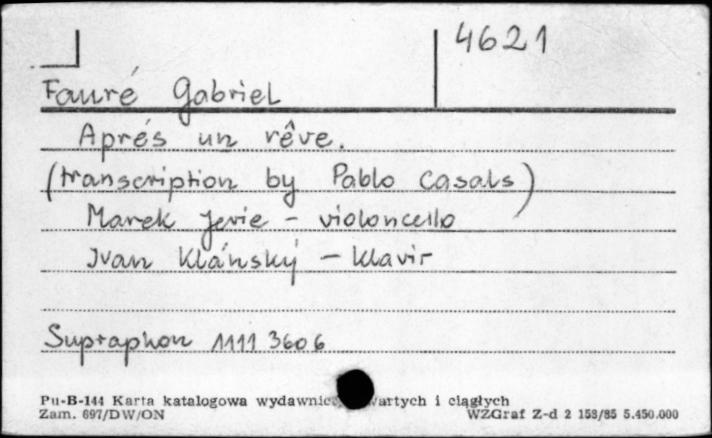 4621
Fauré Gabriel
Aprés un rêve.
(transcription by Pablo Casals)
Marek Jerie - violoncello
Ivan Klánský - klavir
Supraphon 1111 3606
Pu-B-144 Karta katalogowa wydawnic wartych i ciągłych
Zam. 697/DW/ON WZGraf Z-d 2 153/85 5.450.000